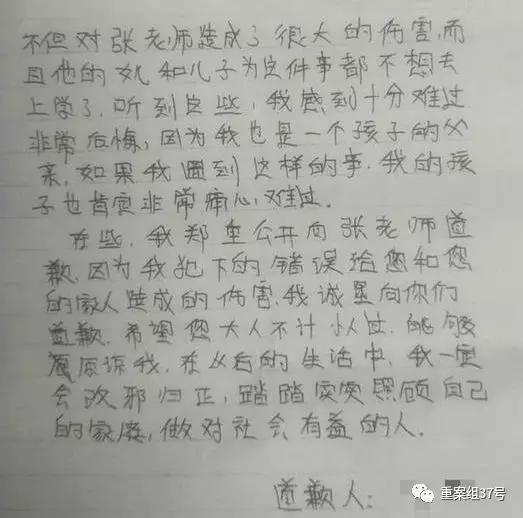 不但对张老师造成了很大的伤害,而
且他的女儿和儿子为这件事都不想去
上学了,听到这些,我感到十分难过
非常后悔,因为我也是一个孩子的父
亲,如果我遇到这样的事,我的孩
子也肯定非常痛心,难过.
在些,我郑重公开向张老师道
歉,因为我犯下的错误给您和您
的家人造成的伤害,我诚恳向你们
道歉,希望您大人不计小人过,能够
原谅我,在以后的生活中,我一定
会改邪归正,踏踏实实照顾自己
的家庭,做对社会有益的人.
道歉人:
重案组37号